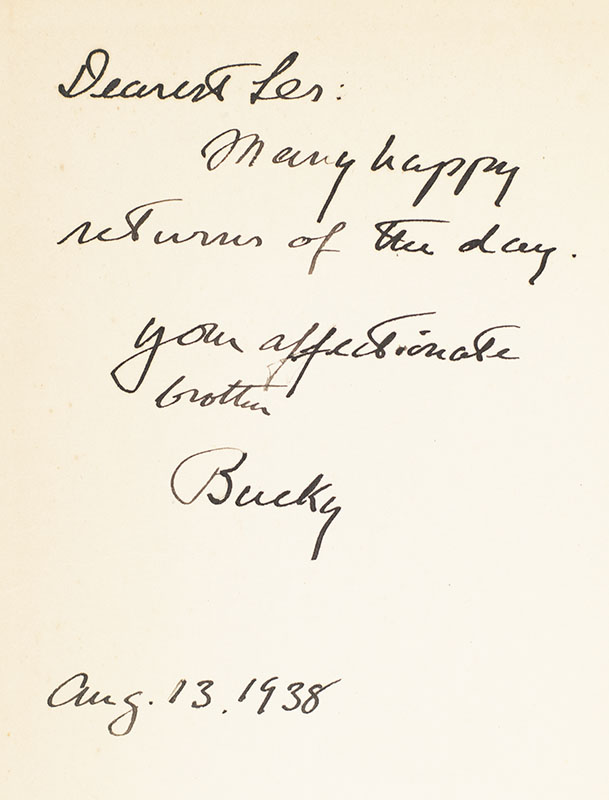 Dearest Les:
Many happy
returns of the day.
your affectionate
brother
Bucky
Aug. 13. 1938